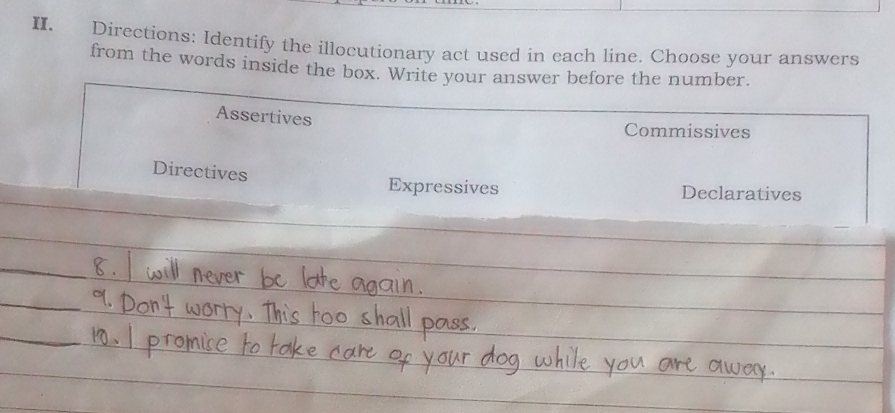 II. Directions: Identify the illocutionary act used in each line. Choose your answers
from the words inside the box. Write your answer before the number.
Assertives
Commissives
Directives
Expressives
Declaratives
8. I will never be late again.
9. Don't worry. This too shall pass.
10. I promise to take care of your dog while you are away.